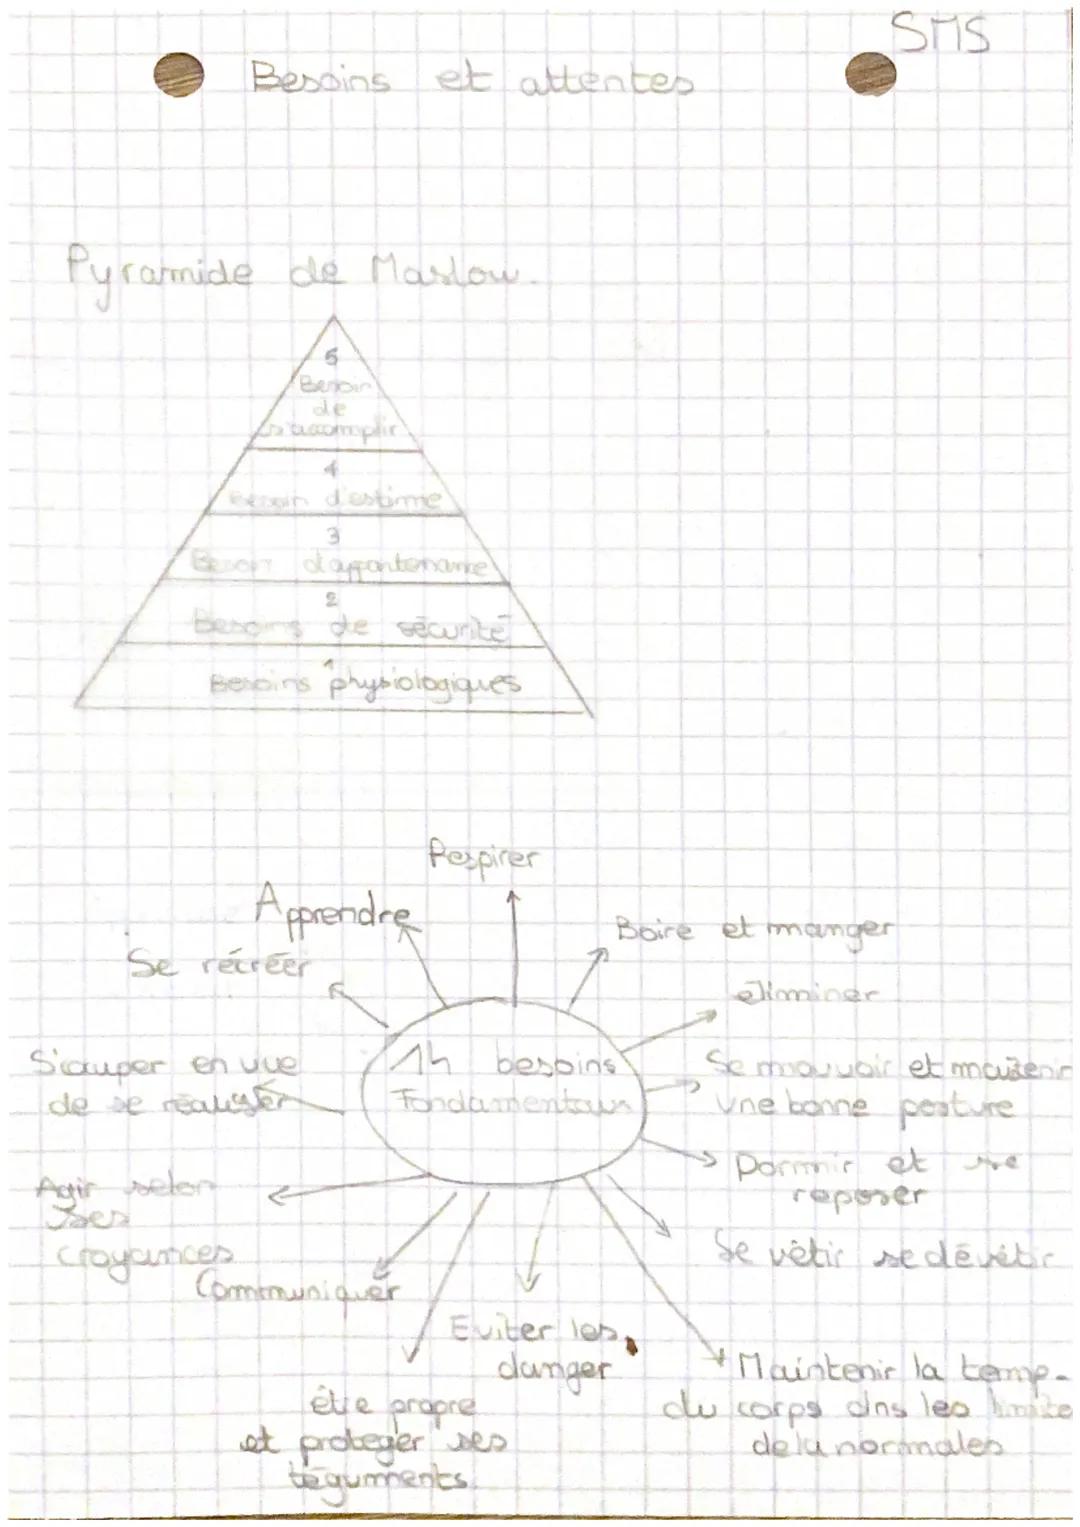 SMS
Besoins et attentes
Pyramide de Maslow.
5
Besoin
de
s'accomplir
4
Besoin d'estime
3
Besoin d'appartenance
2
Besoins de sécurité
1
Besoins physiologiques
Respirer
Apprendre
Boire et manger
Se récréer
éliminer
14 besoins
Fondamentaux
S'occuper en vue
de se réaliser
Se mouvoir et maitenir
Une bonne posture
Dormir et se
reposer
Agir selon
ses
croyances
Se vêtir se dévêtir
Communiquer
Eviter les
danger
Maintenir la temp.
du corps dns les limite
de la normales
être propre
et proteger ses
téguments.